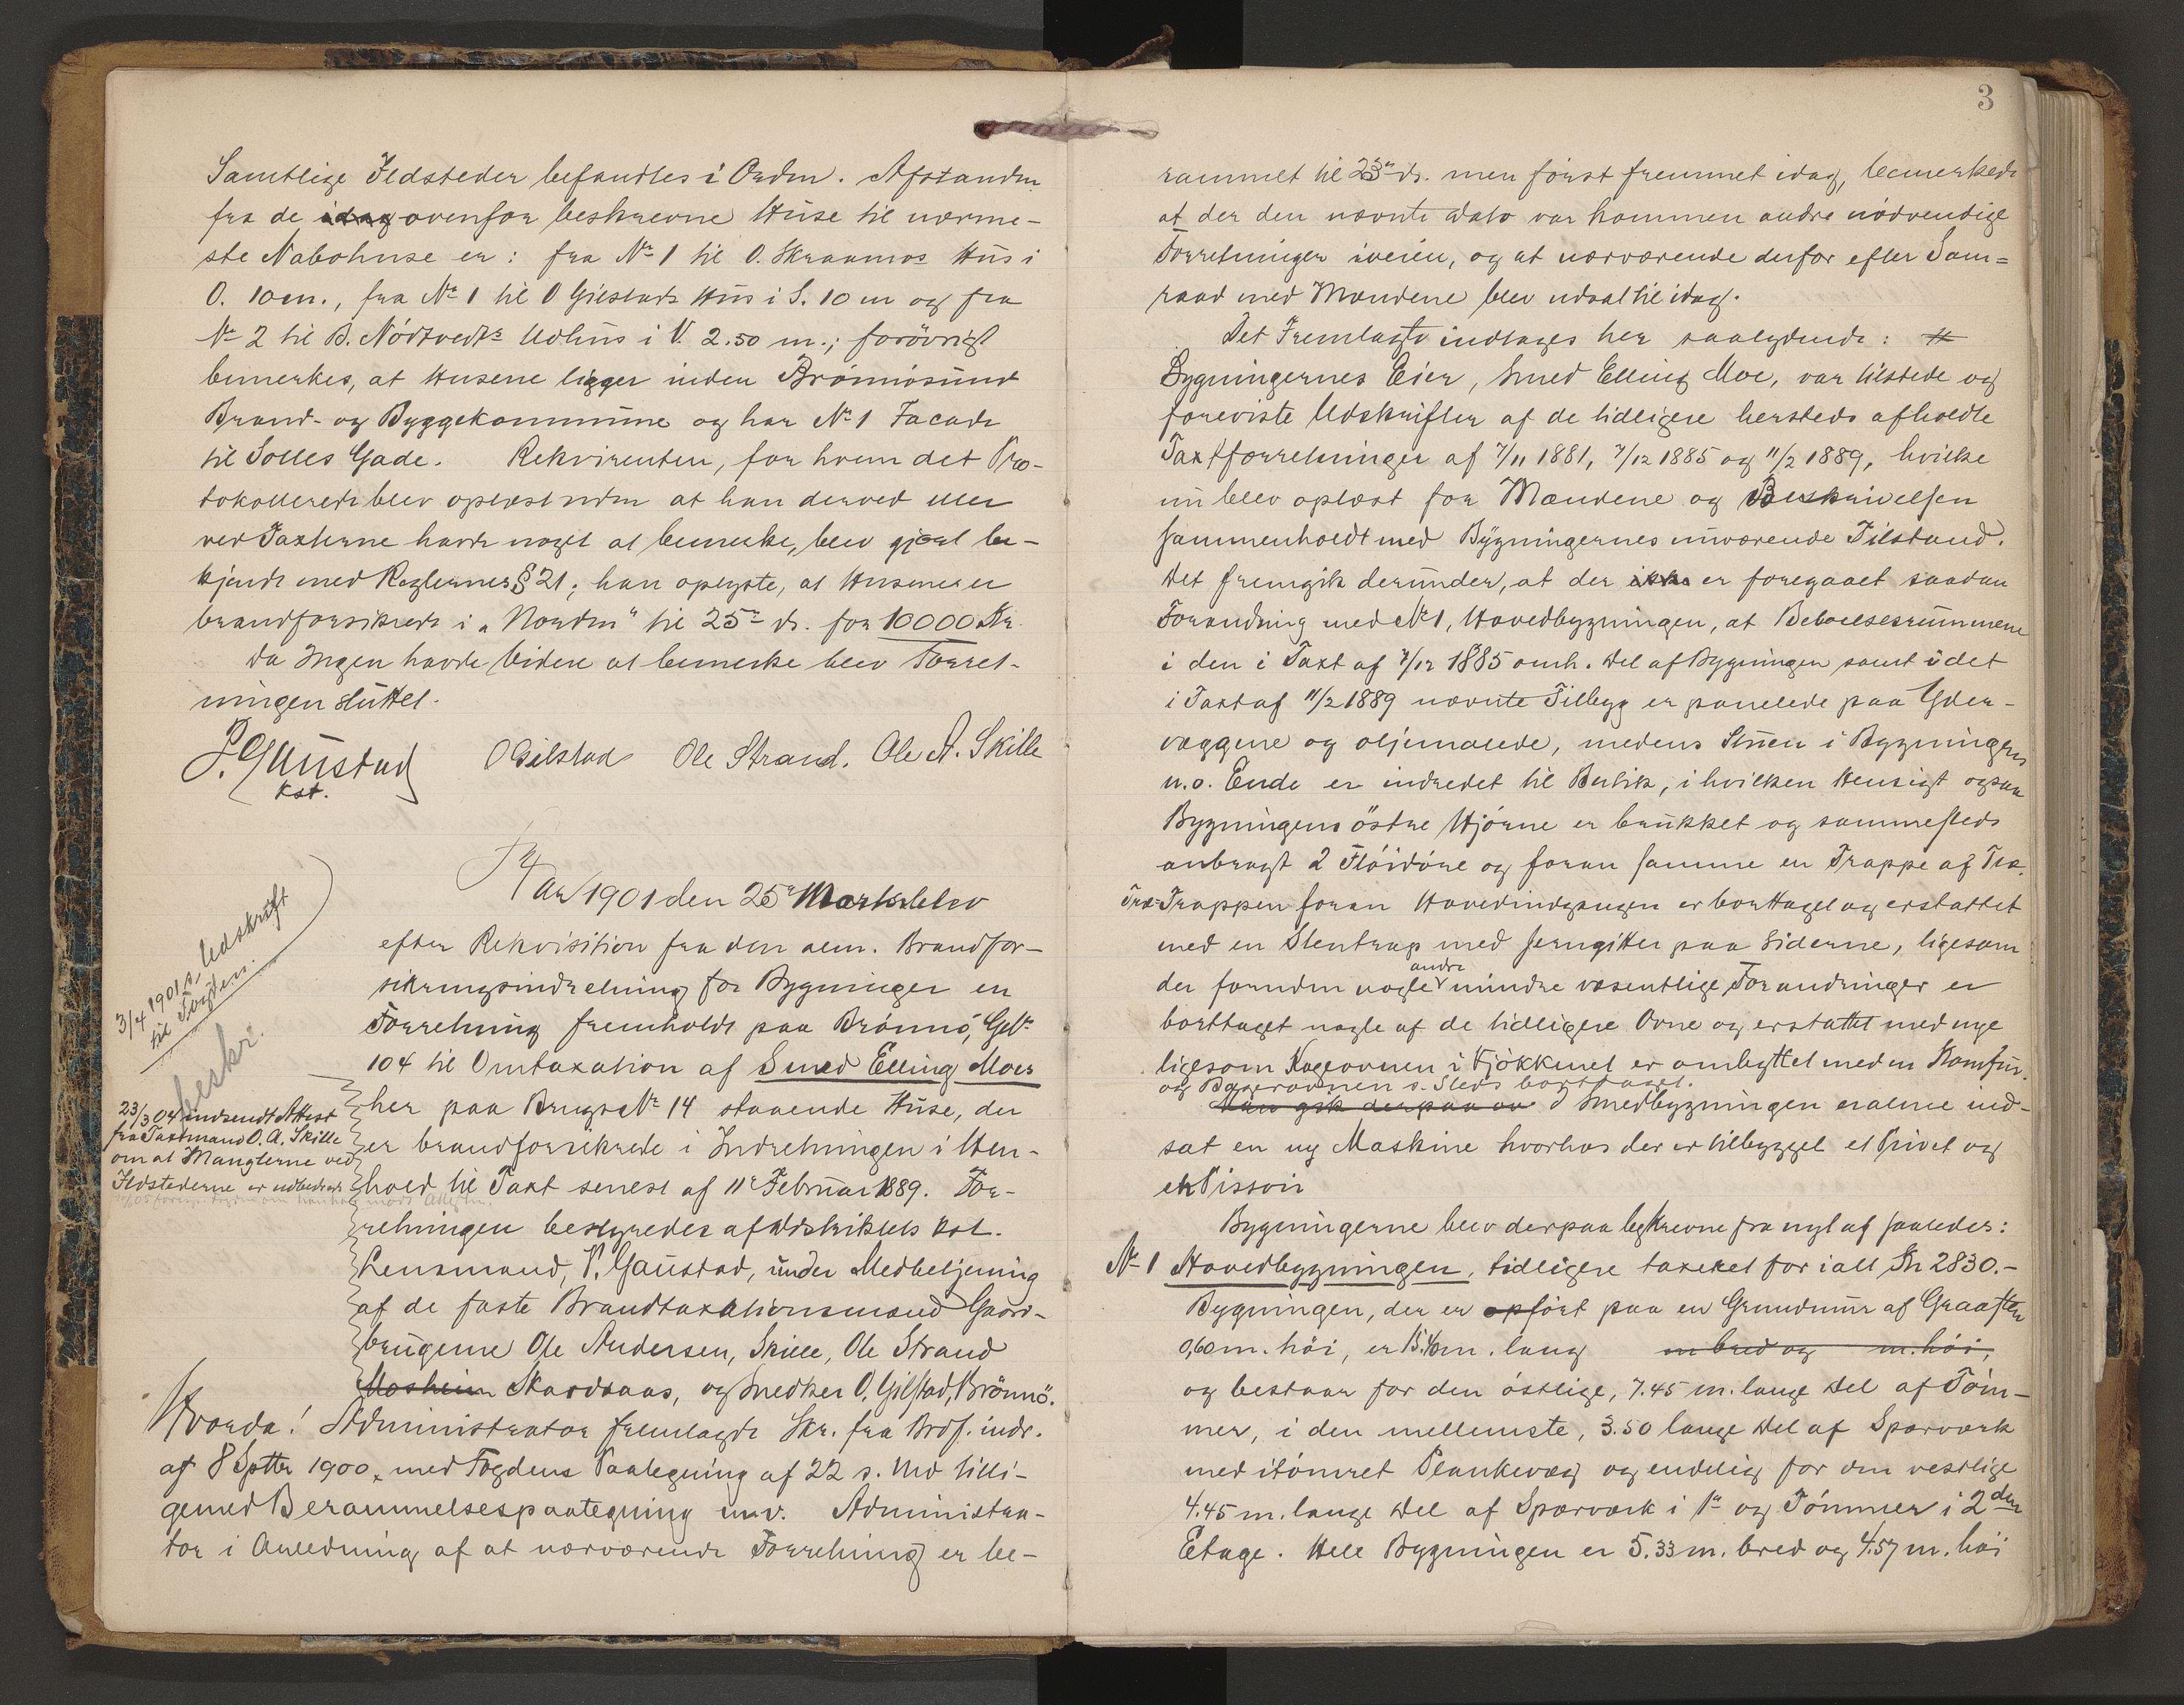 Samtlige Ildsteder befandtes i Orden. Afstanden
fra de idag ovenfor beskrevne Huse til nærme-
ste Nabohuse er: fra No 1 til O. Skraamos Hus i
O. 10 m., fra No 1 til O Gilstads Hus i S. 10 m og fra
No 2 til B. Nödtvedts Udhus i V. 2.50 m.; forövrigt
bemerkes, at Husene ligger inden Brönnösund
Brand- og Byggekommune og har No 1 Facade
til Solles Gade. Rekvirenten, for hvem det Pro-
tokollerede blev oplæst uden at han derved eller
ved Taxterne havde noget at bemerke, blev gjort be-
kjendt med Reglernes § 21; han oplyste, at Husene er
brandforsikrede i „Norden" til 25de ds. for 10000 Kr.
Da Ingen havde Videre at bemerke blev Forret-
ningen sluttet.
P. Gaustad OGilstad Ole Strand. Ole A. Skille
Kst.
Aar 1901 den 25de Marts blev
efter Rekvisition fra den alm. Brandfor-
sikringsindretning for Bygninger en
Forretning fremholdt paa Brönnö, Gno
104 til Omtaxation af Smed Elling Moes
her paa Brugs No 14 staaende Huse, der
er brandforsikrede i Indretningen i Hen-
hold til Taxt senest af 11te Februar 1889. For-
retningen bestyredes af Distriktets kst.
Lensmand, P. Gaustad, under Medbetjening
af de faste Brandtaxationsmænd Gaard-
brugerne Ole Andersen, Skille, Ole Strand
Mosheim Skardsaas, og Snedker O. Gilstad, Brönnö.
3/4 1901 s. Udskrift
til Fogden.
beskr.
23/3 04 indsendt Attest
fra Taxtmand O. A. Skille
om at Manglerne ved
Ildstederne er udbedrede
Hvorda! Administrator fremlagde Skr. fra Brdf. indr.
af 8 Septbr 1900, med Fogdens Paategning af 22 s. Md tilli-
gemed Berammelsespaategning m.v. Administra-
tor i Anledning af at nærværende Forretning er be-
3
rammet til 23de ds. men först fremmet idag, bemerkede
at der den nævnte Dato var kommen andre nödvendige
Forretninger iveien, og at nærværende derfor efter Sam-
raad med Mændene blev udsat til idag.
Det Fremlagte indtages her saalydende: #
Bygningernes Eier, Smed Elling Moe, var tilstede og
foreviste Udskrifter af de tidligere hersteds afholdte
Taxtforretninger af 7/11 1881, 7/12 1885 og 11/2 1889, hvilke
nu blev oplæst for Mændene og Beskrivelsen
sammenholdt med Bygningernes nuværende Tilstand.
Det fremgik derunder, at der ikke er foregaaet saadan
Forandring med No 1, Hovedbygningen, at Beboelsesrummene
i den i Taxt af 7/12 1885 omh. Del af Bygningen samt i det
i Taxt af 11/2 1889 nævnte Tilbyg er panelede paa Yder-
væggene og oljemalede, medens Stuen i Bygningens
n.o. Ende er indredet til Butik, i hvilken Hensigt ogsaa
Bygningens östre Hjörne er brukket og sammesteds
anbragt 2 Flöidöre og foran samme en Trappe af Træ.
Træ-Trappen foran Hovedindgangen er borttaget og erstattet
med en Stentrap med Jerngitter paa Siderne, ligesom
der foruden nogle andre mindre væsentlige Forandringer er
borttaget nogle af de tidligere Ovne og erstattet med nye
ligesom Kogeovnen i Kjökkenet er ombyttet med en Komfur.
og Bagerovnen s. Steds borttaget.
Man gik derpaa ov I Smedbygningen er alene ind-
sat en ny Maskine hvorhos der er tilbygget et Privet og
et Pissoir
Bygningerne blev derpaa beskrevne fra nyt af saaledes:
No 1 Hovedbygningen, tidligere taxeret for ialt Kr 2830.-
Bygningen, der er opfört paa en Grundmur af Graasten
0,60 m. höi, er 15.40 m. lang m bred og m. höi,
og bestaar for den östlige, 7.45 m. lange Del af Töm-
mer, i den mellemste, 3.50 lange Del af Sparværk
med itömret Plankevæg og endelig for den vestlige
4.45 m. lange Del af Sparværk i 1ste og Tömmer i 2den
Etage. Hele Bygningen er 5.33 m. bred og 4.57 m. höi